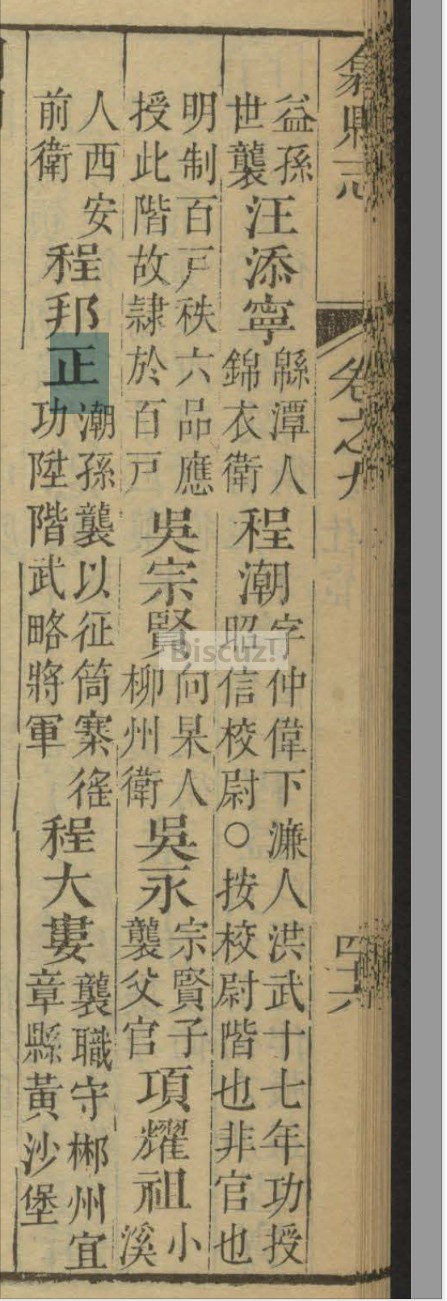 縣志 卷之九
益孫世襲汪添寧緜潭人錦衣衛程潮字仲偉下濂人洪武十七年功授昭信校尉○按校尉階也非官也
明制百戸秩六品應授此階故隷於百戸吳宗賢向杲人柳州衛吳永宗賢子襲父官項耀祖小溪
人西安前衛程邦正潮孫襲以征筒寨徭功陞階武略將軍程大婁襲職守郴州宜章縣黃沙堡
Discuz!